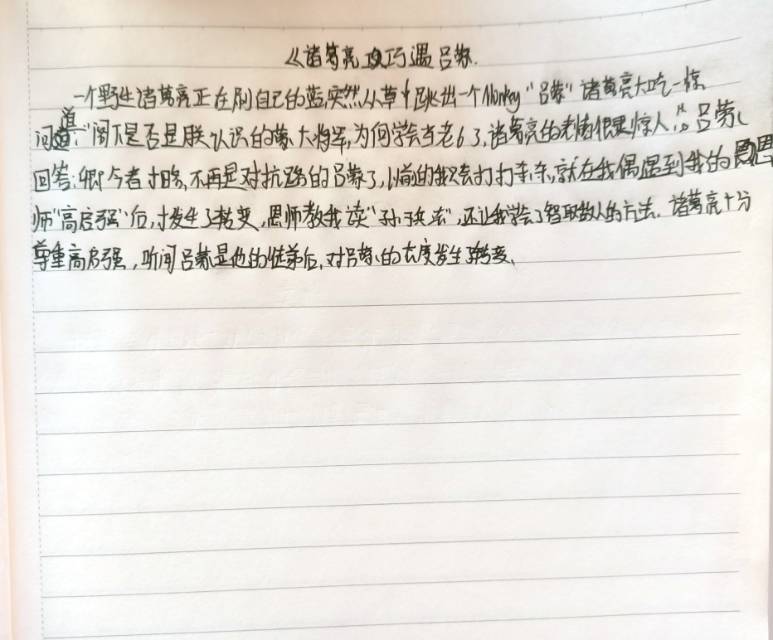 《诸葛亮巧遇吕蒙.
一个野生诸葛亮正在刷自己的蓝,突然从草中跳出一个Monkey"吕蒙"诸葛亮大吃一惊
问道:"阁下是否是朕认识的蒙大将军,为何学会当老6了,诸葛亮的表情很是惊人"。吕蒙
回答:卿今者才略,不再是对抗路的吕蒙了,以前的我只会打打杀杀,就在我偶遇到我的恩
师"高启强"后,才发生了转变,恩师教我读"孙子兵法",还让我学会了智取敌人的方法.诸葛亮十分
尊重高启强,听闻吕蒙是他的徒弟后,对吕蒙的态度发生了转变.